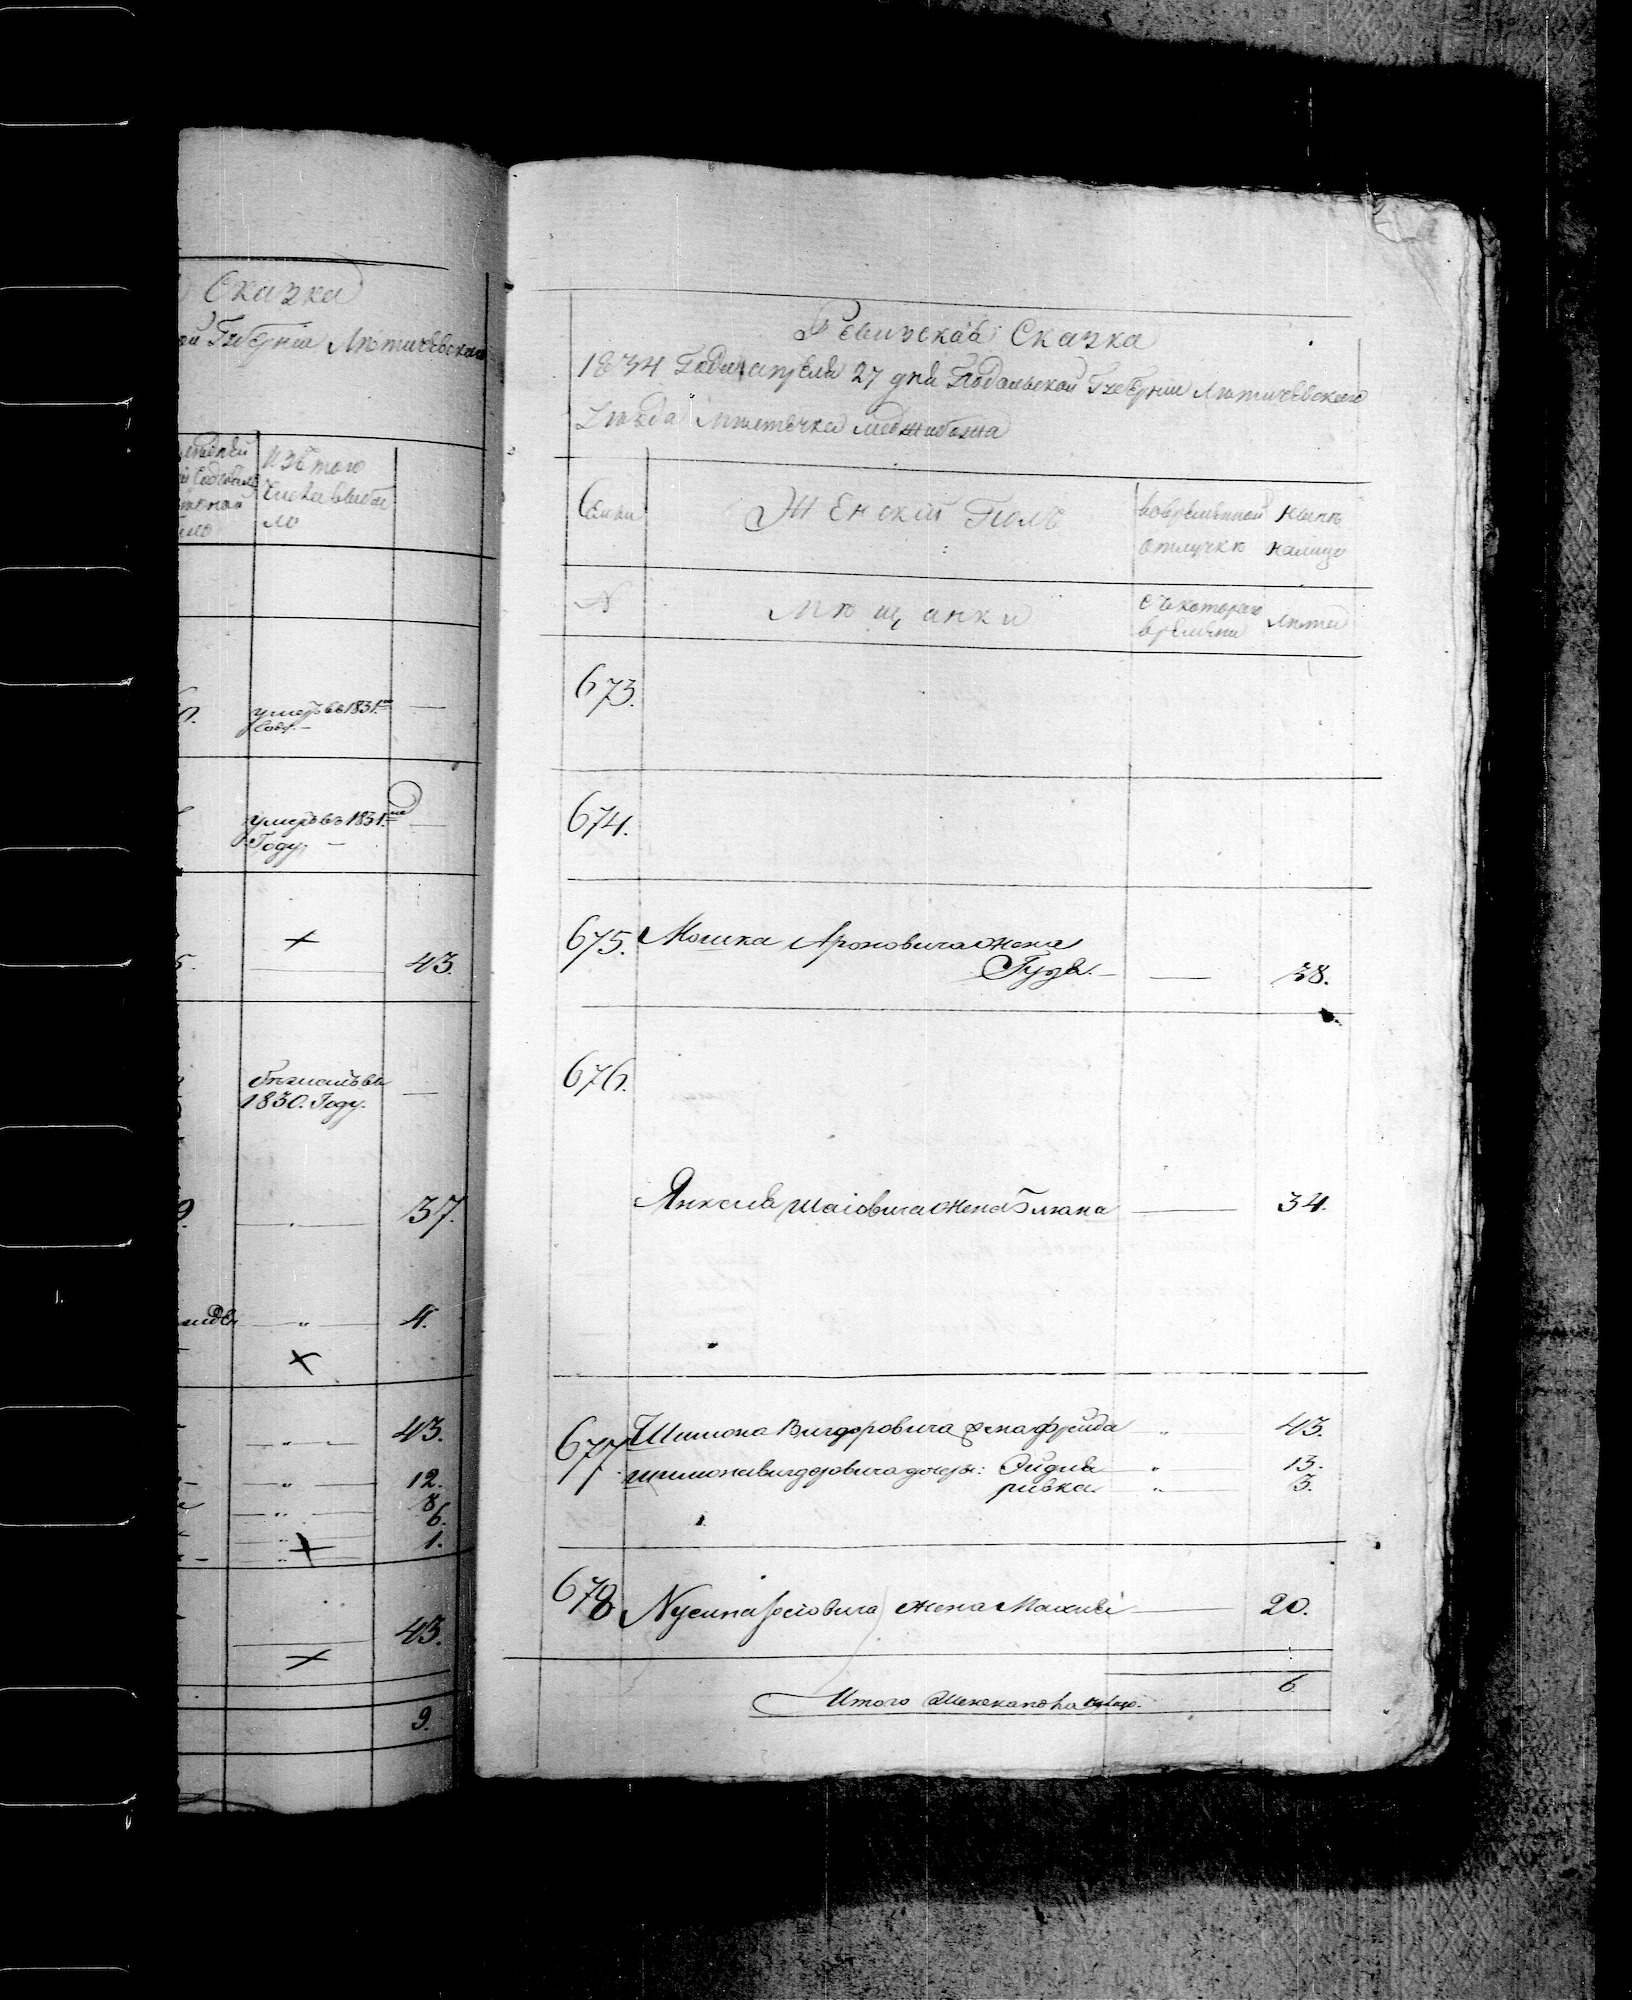 Сказка
Губерніи Литичевскаго
Изъ того
числа выбы
ло
умеръ въ 1831.мъ
Году.
умеръ въ 1831.мъ
Году.
43.
1830. Году.
37.
4.
43.
12.
8
6.
1.
43.
9.
Ревизская Сказка
1834 Года апреля 27 дня Подольской Губерніи Литичевского
Уѣзда Мѣстечка Меджибожа
Семьи
Женскій Полъ
во временной
отлучкѣ
нынѣ
налицо
N
Мѣщанки
съ котораго
времени
лѣта
673.
674.
675. Мошка Ароновича жена
Груда. — 38.
676.
Янкеля Шаіовича жена Блюма 34.
677. Шимона Вигдоровича жена фрейда " 43.
шимона вигдоровича дочери: Эйдля " 13.
ривка " 3.
678 Нусина Іосіовича жена Махля 20.
Итого Женска пола 6